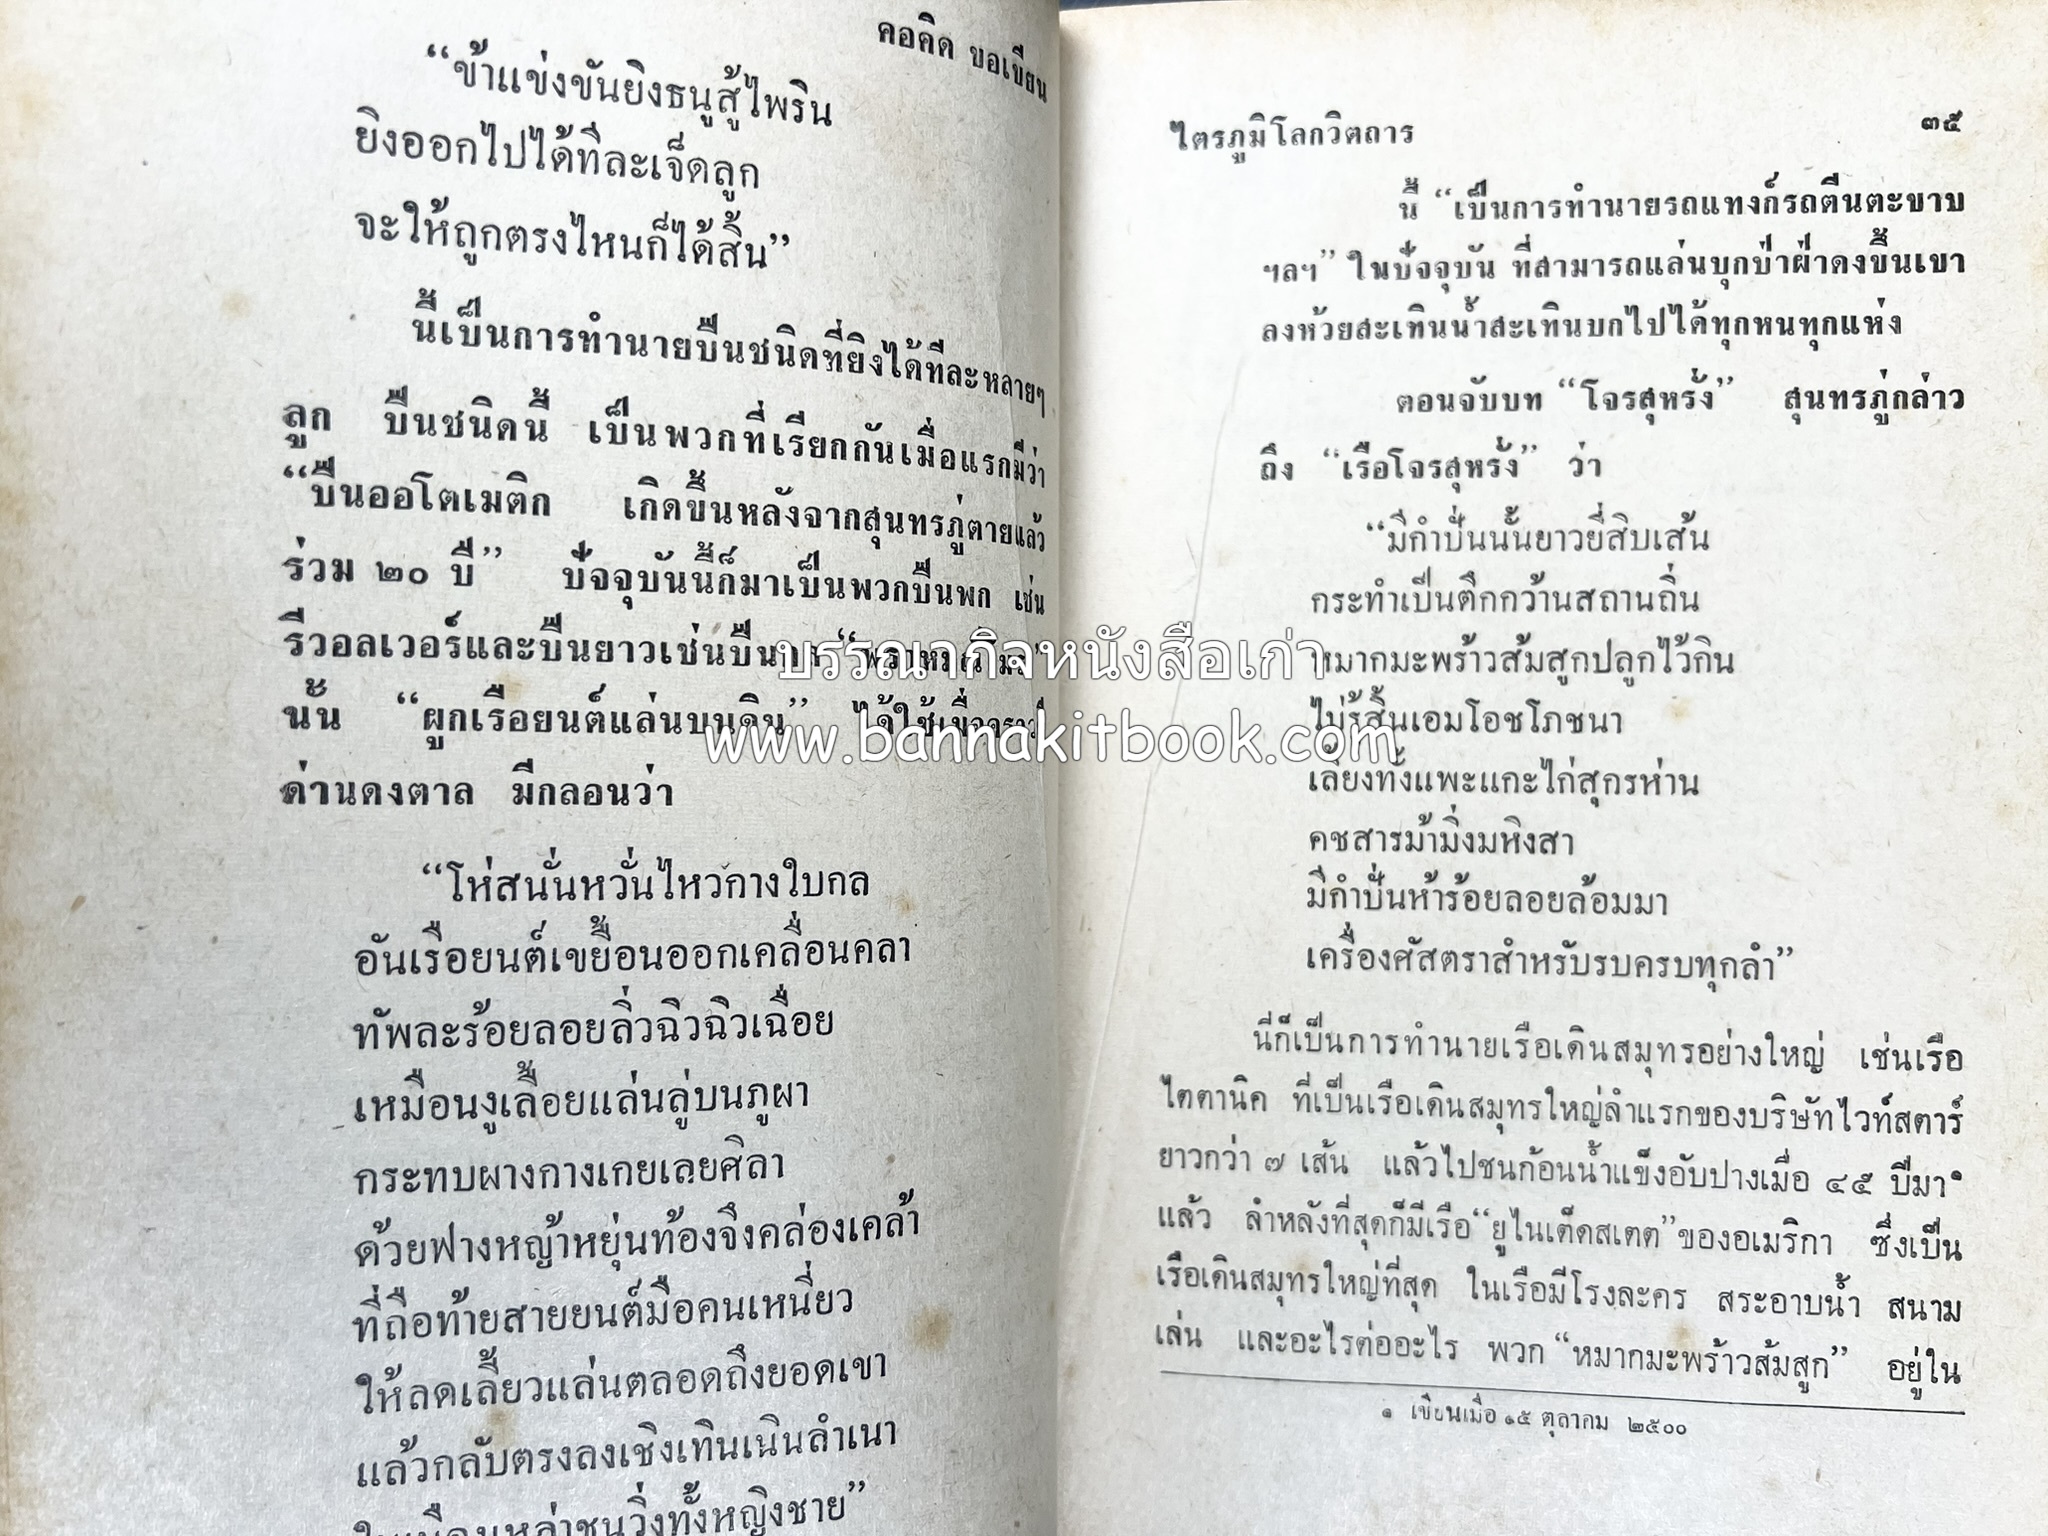 คอคิด ขอเขียน
“ข้าแข่งขันยิงธนูสู้ไพริน
ยิงออกไปได้ทีละเจ็ดลูก
จะให้ถูกตรงไหนก็ได้สิ้น”
นี้เป็นการทำนายปืนชนิดที่ยิงได้ทีละหลายๆ
ลูก ปืนชนิดนี้ เป็นพวกที่เรียกกันเมื่อแรกมีว่า
“ปืนออโตเมติก เกิดขึ้นหลังจากสุนทรภู่ตายแล้ว
ร่วม ๒๐ ปี” ปัจจุบันนี้ก็มาเป็นพวกปืนพก เช่น
รีวอลเวอร์และปืนยาวเช่นปืน
นั้น “ผูกเรือยนต์แล่นบนดิน” ได้ใช้เมื่อคราวตี
ด่านดงตาล มีกลอนว่า
“โห่สนั่นหวั่นไหวกางใบกล
อันเรือยนต์เขยื้อนออกเคลื่อนคลา
ทัพละร้อยลอยลิ่วฉิวฉิวเฉื่อย
เหมือนงูเลื้อยแล่นลู่บนภูผา
กระทบผางกางเกยเลยศิลา
ด้วยฟางหญ้าหยุ่นท้องจึงคล่องเคล้า
ที่ถือท้ายสายยนต์มือคนเหนี่ยว
ให้ลดเลี้ยวแล่นตลอดถึงยอดเขา
แล้วกลับตรงลงเชิงเทินเนินลำเนา
ในเมืองเหล่าชนวิ่งทั้งหญิงชาย”
ไตรภูมิโลกวิตถาร ๓๕
นี้ “เป็นการทำนายรถแทงก์รถตีนตะขาบ
ฯลฯ” ในปัจจุบัน ที่สามารถแล่นบุกป่าฝ่าดงขึ้นเขา
ลงห้วยสะเทินน้ำสะเทินบกไปได้ทุกหนทุกแห่ง
ตอนจับบท “โจรสุหรั่ง” สุนทรภู่กล่าว
ถึง “เรือโจรสุหรั่ง” ว่า
“มีกำปั่นนั้นยาวยี่สิบเส้น
กระทำเป็นตึกกว้านสถานถิ่น
หมากมะพร้าวส้มสูกปลูกไว้กิน
ไม่รู้สิ้นเอมโอชโภชนา
เลี้ยงทั้งแพะแกะไก่สุกรห่าน
คชสารม้ามิ่งมหิงสา
มีกำปั่นห้าร้อยลอยล้อมมา
เครื่องศัสตราสำหรับรบครบทุกลำ”
นี่ก็เป็นการทำนายเรือเดินสมุทรอย่างใหญ่ เช่นเรือ
ไตตานิค ที่เป็นเรือเดินสมุทรใหญ่ลำแรกของบริษัทไวท์สตาร์
ยาวกว่า ๗ เส้น แล้วไปชนก้อนน้ำแข็งอับปางเมื่อ ๔๕ ปีมา๑
แล้ว ลำหลังที่สุดก็มีเรือ“ยูไนเต็ดสเตต”ของอเมริกา ซึ่งเป็น
เรือเดินสมุทรใหญ่ที่สุด ในเรือมีโรงละคร สระอาบน้ำ สนาม
เล่น และอะไรต่ออะไร พวก “หมากมะพร้าวส้มสูก” อยู่ใน
๑ เขียนเมื่อ ๑๕ ตุลาคม ๒๕๐๐
บรรณากิจหนังสือเก่า
www.bannakitbook.com